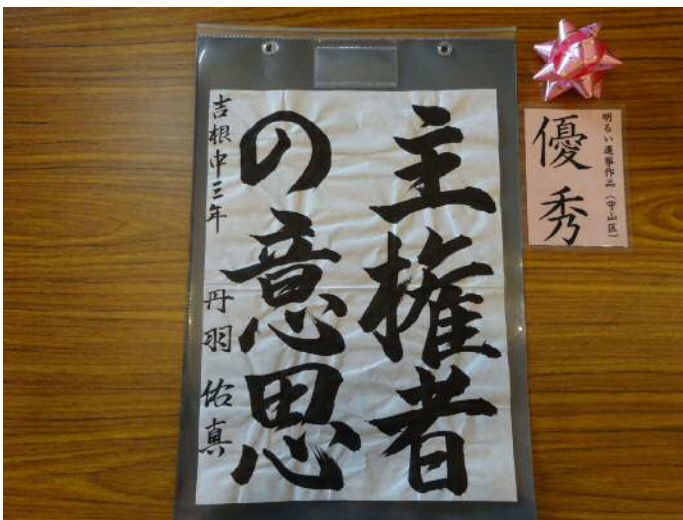 主権者
の意思
吉根中三年 丹羽佑真
明るい選挙作品(守山区)
優秀